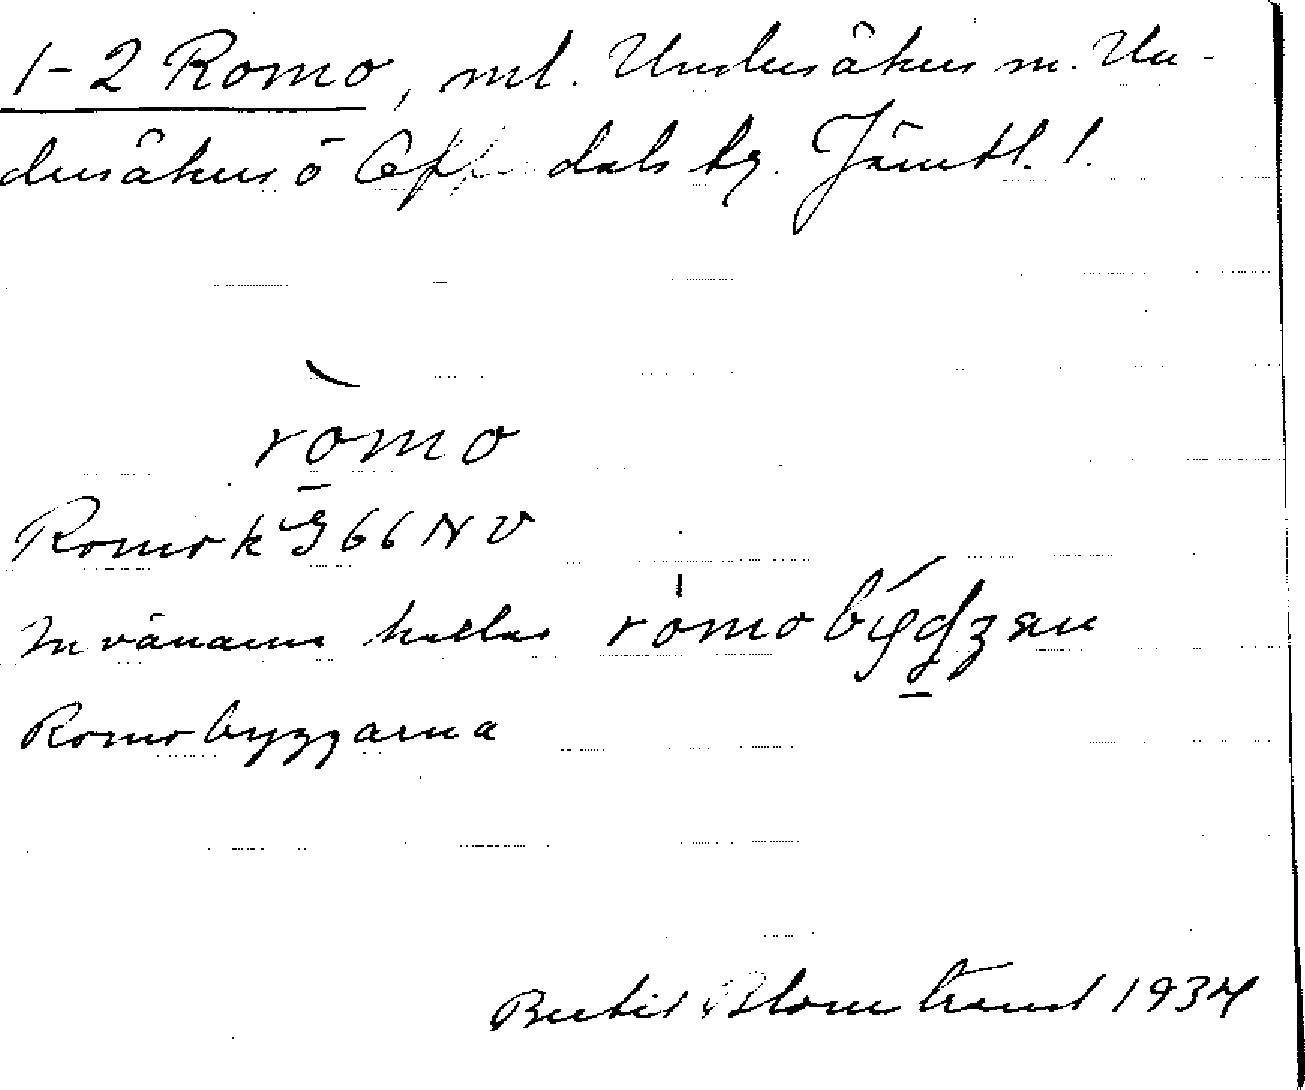 1-2 Romo, ml. Undersåkers sn. Un-
dersåkers o Offerdals tg. Jämtl. l.
romo
Romo k G 66 NV
Invånarna kallas
Romobyggarna
Bertil Blomstrand 1934